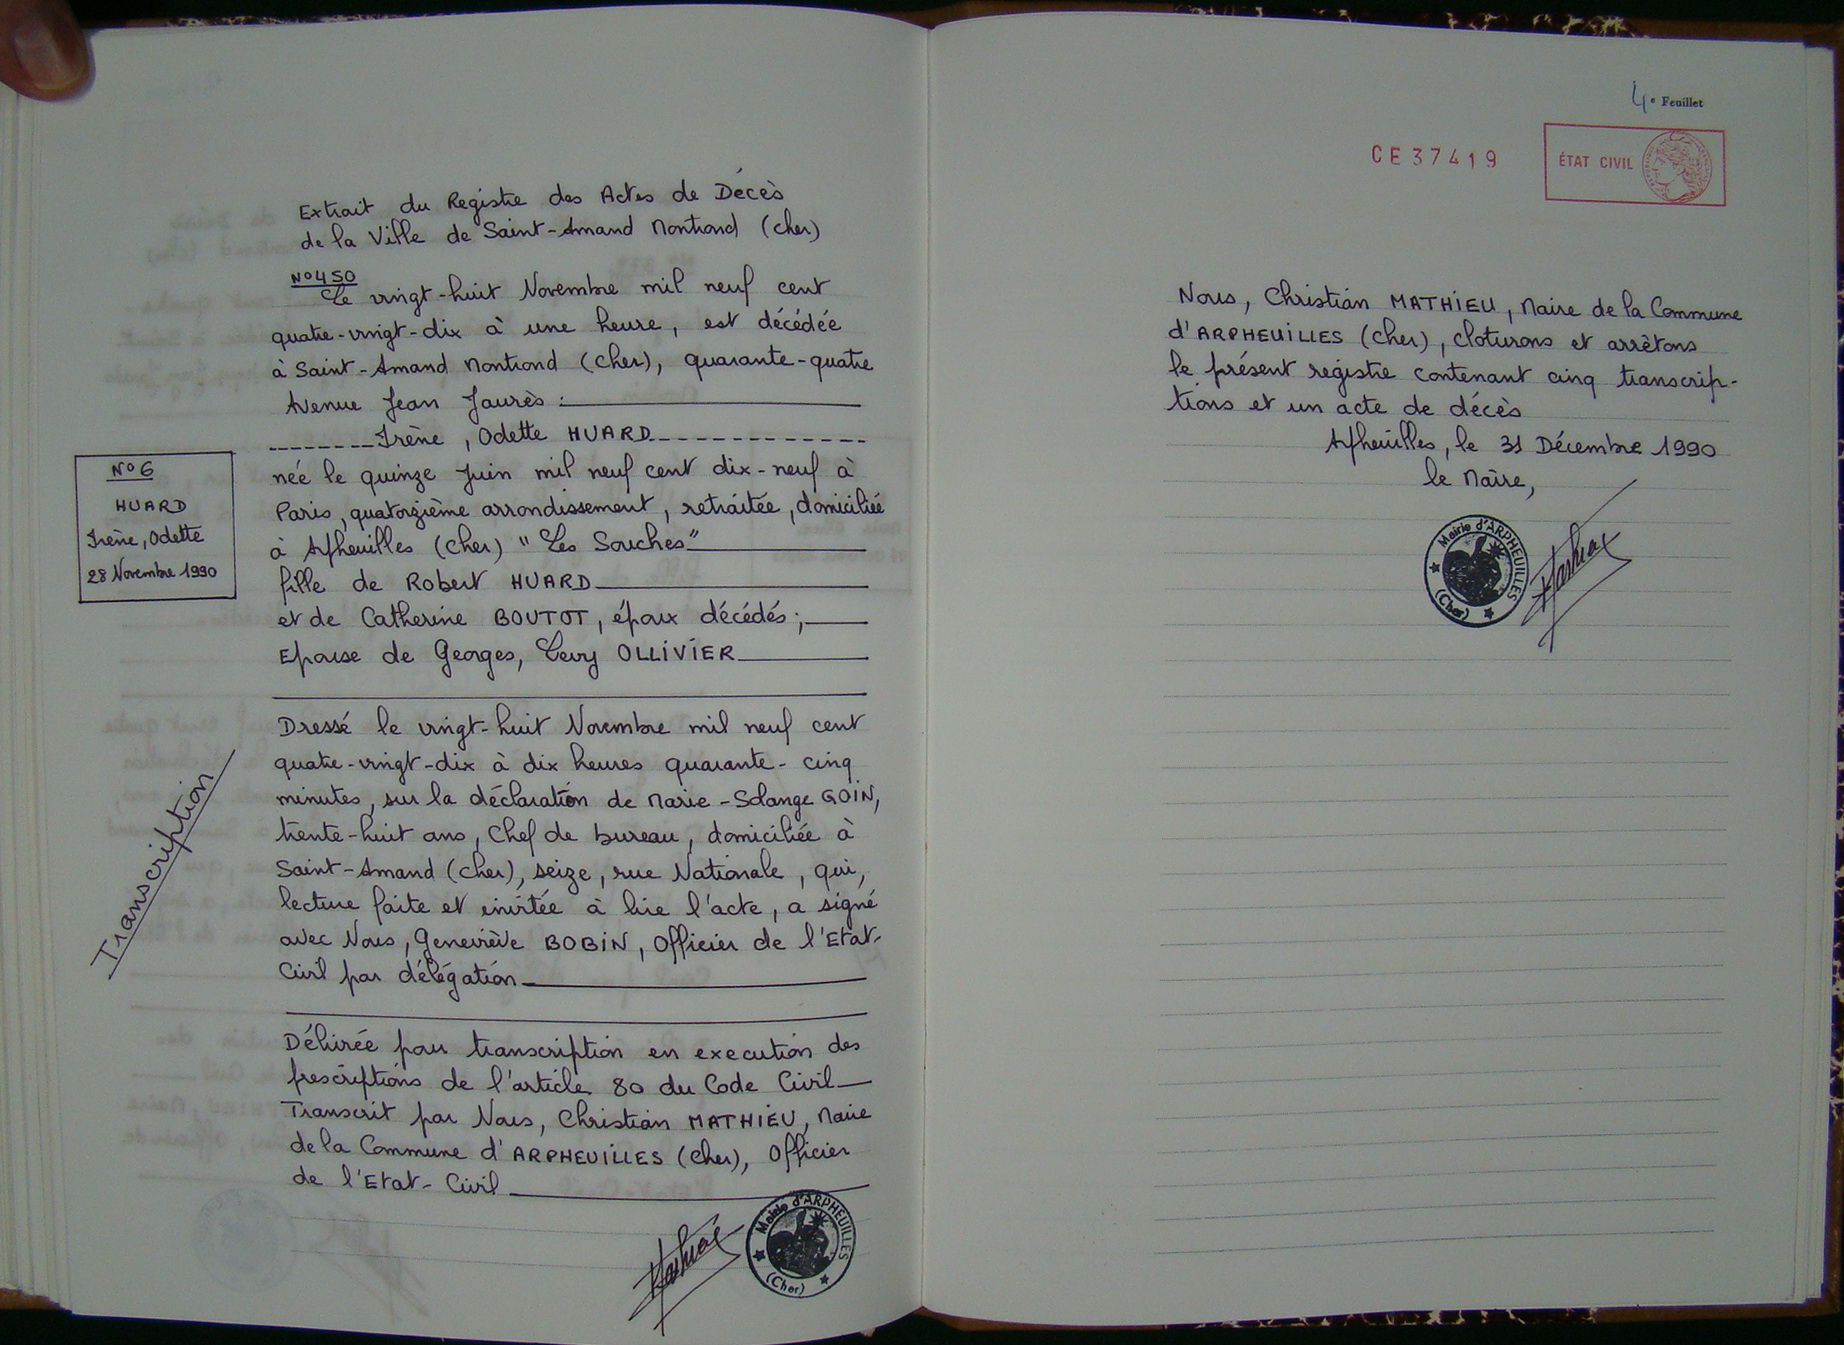 Extrait du Registre des Actes de Décès
de la Ville de Saint-Amand Montrond (Cher)
N°450
Le vingt-huit Novembre mil neuf cent
quatre-vingt-dix à une heure, est décédée
à Saint-Amand Montrond (Cher), quarante-quatre
Avenue Jean Jaurès :
Irène, Odette HUARD
née le quinze Juin mil neuf cent dix-neuf à
Paris, quatorzième arrondissement, retraitée, domiciliée
à Arpheuilles (Cher) "Les Souches"
fille de Robert HUARD
et de Catherine BOUTOT, époux décédés;
Epouse de Georges, Levy OLLIVIER
N°6
HUARD
Irène, Odette
28 Novembre 1990
Dressé le vingt-huit Novembre mil neuf cent
quatre-vingt-dix à dix heures quarante-cinq
minutes, sur la déclaration de Marie-Solange GOIN,
trente-huit ans, Chef de bureau, domiciliée à
Saint-Amand (Cher), seize, rue Nationale, qui,
lecture faite et invitée à lire l'acte, a signé
avec Nous, Geneviève BOBIN, Officier de l'Etat-
Civil par délégation
Transcription
Délivrée pour transcription en execution des
prescriptions de l'article 80 du Code Civil
Transcrit par Nous, Christian MATHIEU, Maire
de la Commune d'ARPHEUILLES (Cher), Officier
de l'Etat-Civil
Mairie d'ARPHEUILLES
(Cher)
4e Feuillet
CE37419
ÉTAT CIVIL
Nous, Christian MATHIEU, Maire de la Commune
d'ARPHEUILLES (Cher), cloturons et arrêtons
le présent registre contenant cinq transcrip-
tions et un acte de décès
Arpheuilles, le 31 Décembre 1990
le Maire,
Mairie d'ARPHEUILLES
(Cher)